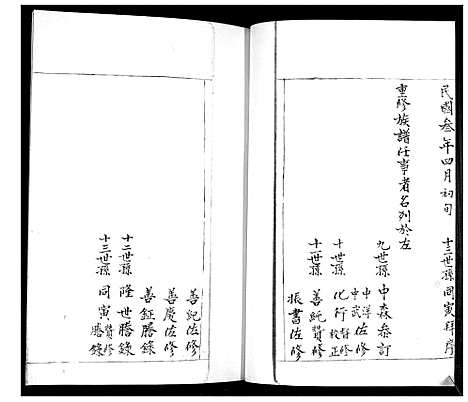 民國叁年四月初旬 十三世孫同寅拜序
重修族譜任事者名列於左
九世孫 申森叅訂
申洋
申武佐修
十世孫 化行督修校正
十一世孫 善純贊修
振書佐修
善紀佐修
善慶佐修
善鉦謄錄
十二世孫 隆世謄錄
十三世孫 同寅贊修謄錄